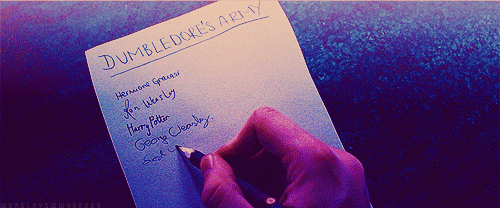 DUMBLEDORE'S ARMY
Hermione Granger
Ron Weasley
Harry Potter
George Weasley
WEASLEYSWWHEEZES